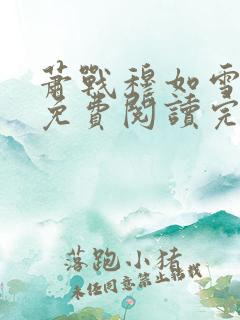 萧戰穆如雪
免費閱讀完
落跑小猪
未经同意禁止转载